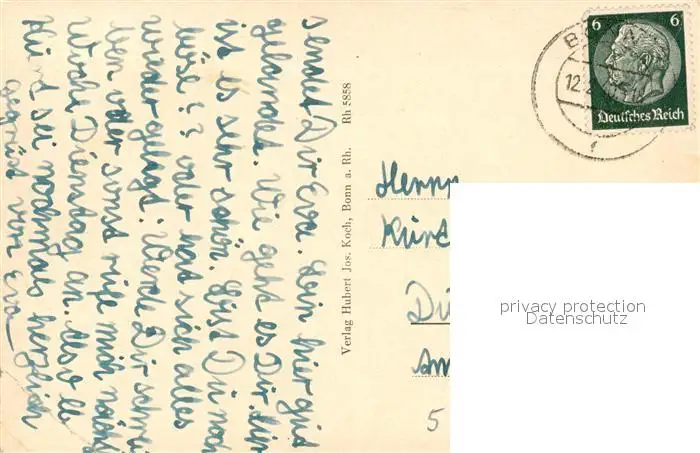 sendet Dir Eva. Bin hier gut
gelandet. Wie geht es Dir. hier
ist es sehr schön. Bist Du noch
böse ?? oder hat sich alles
wieder gelegt. Werde Dir schrei
ben oder sonst rufe mich nächst
Woche Dienstag an. Also lb
Kurt sei nochmals herzlich
gegrüßt von Eva
Verlag Hubert Jos. Koch, Bonn a. Rh. Rh 5858
6 6
Deutsches Reich
12.
Herrn
Kurt
Dü
Am
5
privacy protection
Datenschutz